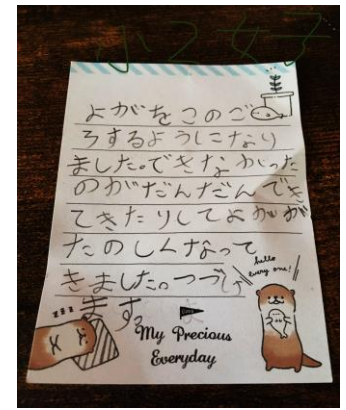 小2女子
よがをこのご
ろするようになり
ました。できなかった
のがだんだんでき
てきたりしてよがが
たのしくなって
きました。つづけ
ます。
hello
every one!
zzz
My Precious
Everyday